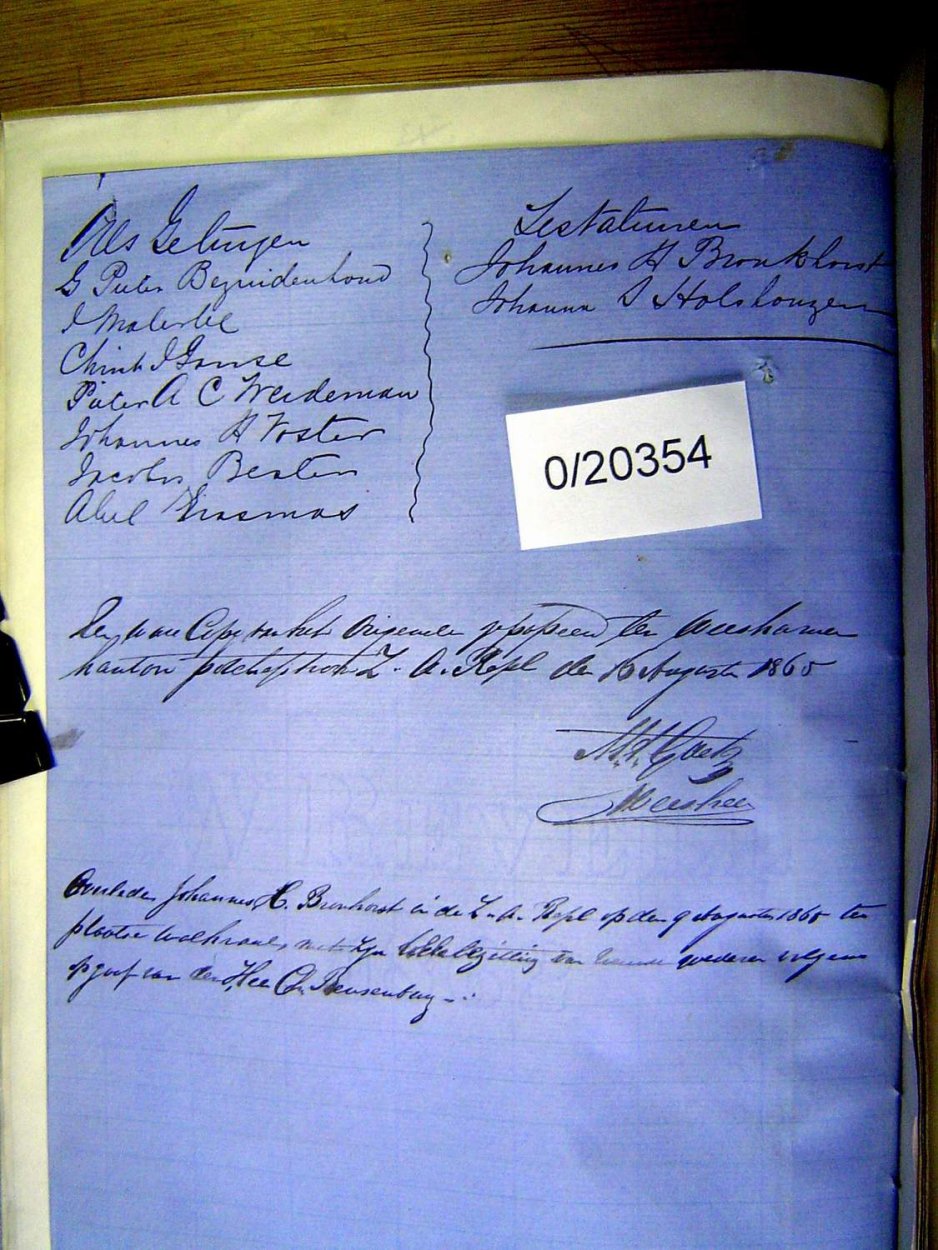 Als Getuigen
G Pieter Bezuidenhoud
I Malerbe
Christ I Gouse
Pieter A C Weideman
Johannes H Voster
Jacobus Bester
Abel Erasmus
Testateuren
Johannes H Bronkhorst
Johanna S Holshouzen
0/20354
Een ware Copy van het Origeneele gepasseerd ter Weeskamer
kantoor Potchefstroom Z. A. Repl den 16 Augustus 1865
Goetz
Weesheer
Overleden Johannes H. Bronhorst in de Z. A. Repl op den 9 Augustus 1865 ter
plaatse met zyn goederen volgens
opgaaf van den Heer Ch. Rensenburg